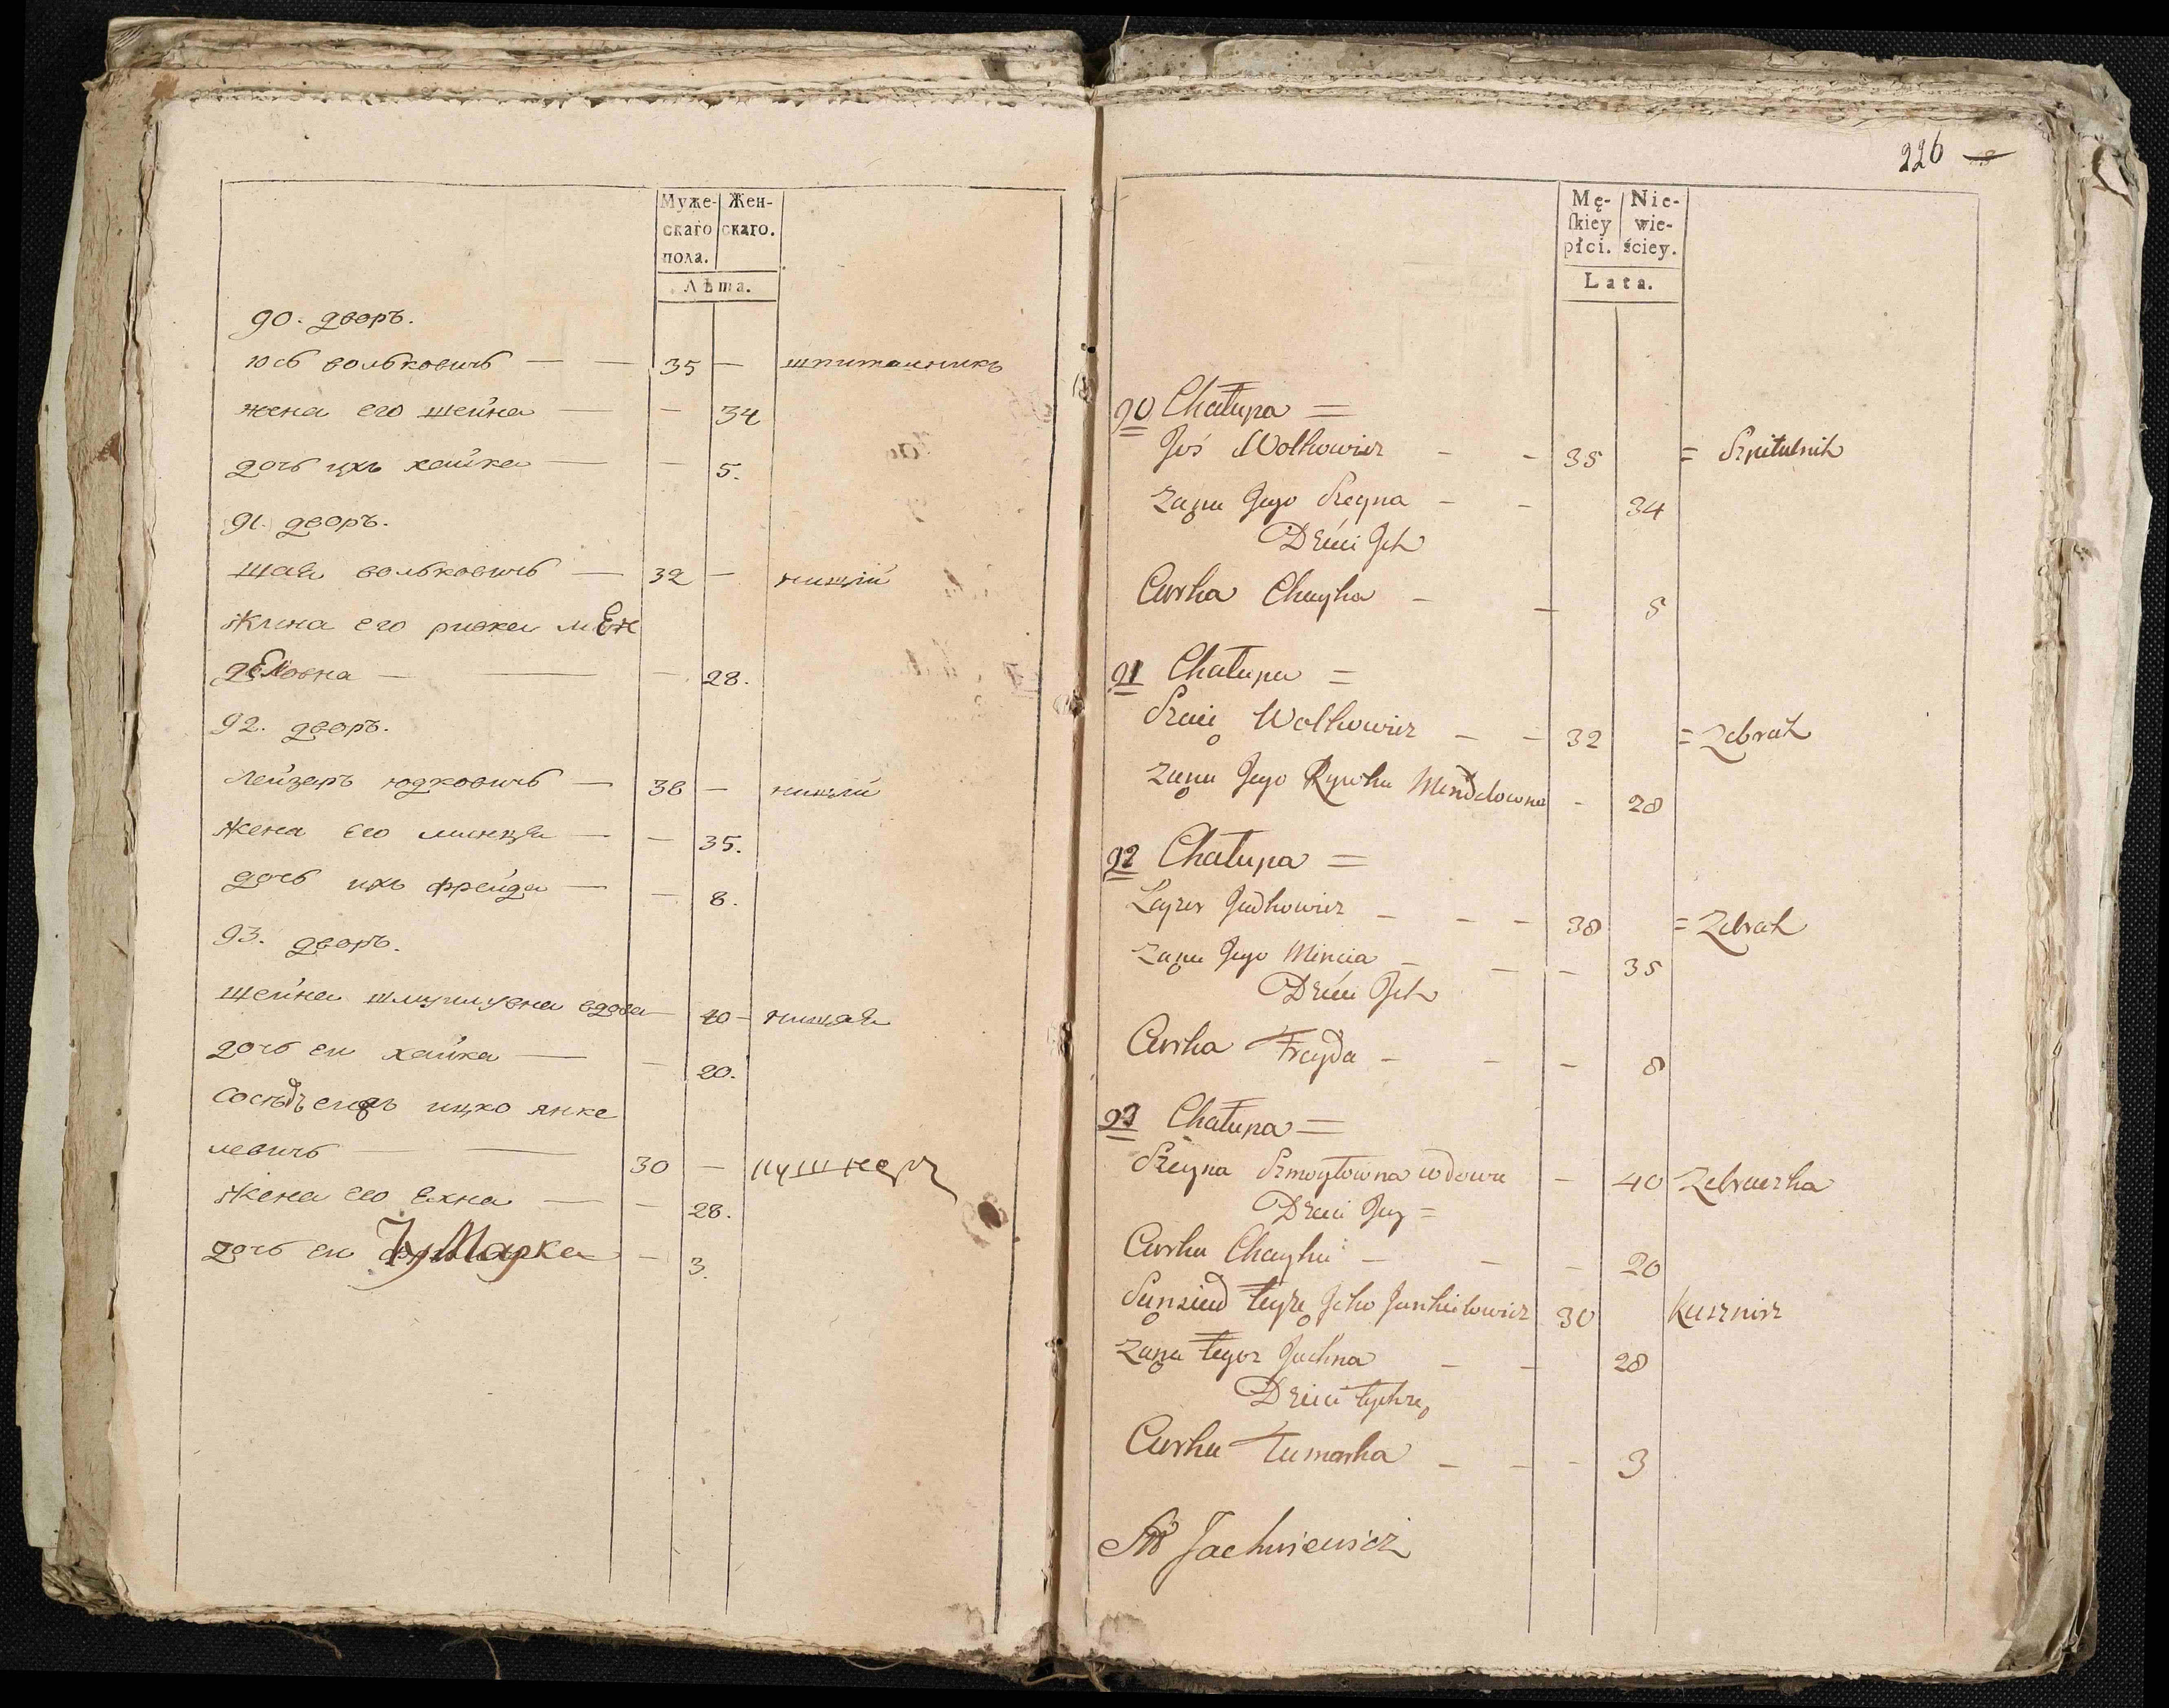 Муже- Жен-
скаго скаго.
пола.
Лѣта.
90. дворъ.
юсь вольковичь — — 35 — шпитальникъ
жена его шейна — — 34
дочь ихъ хайка — — 5.
91. дворъ.
шая вольковичь — 32 — нищій
Жина его ривка мен
деловна — — — 28.
92. дворъ.
Лейзеръ юдковичь — 38 — нищій
жена его минця — — 35.
дочь ихъ фрейда — — 8.
93. дворъ.
шейна шмуйлувна вдова — 40 — нищая
дочь еи хайка — — 20.
Сосѣдъ ицко янке
левичь — — 30 — кушнеръ
жена его Ехна — — 28.
дочь еи Тумарка — — 3.
226
Mę- Nie-
skiey wie-
płci. ściey.
Lata.
90 Chałupa =
Joś Wolkowicz - - 35 = Szpitalnik
Zona Jego Szeyna - - 34
Dzieci Ich
Curka Chayka - - 5
91 Chałupa =
Szaia Wolkowicz - - 32 = Zebrak
Zona Jego Rywka Mendelowna - 28
92 Chałupa =
Layzer Judkowicz - - - 38 = Zebrak
Zona Jego Mincia - - - 35
Dzieci Ich
Curka Freyda - - - 8
93 Chałupa =
Szeyna Szmoyłowna wdowa - 40 Zebraczka
Dzieci Jey =
Curka Chayka - - - 20
Sąnsiad teyże Icko Jankielowicz 30 Kusznirz
Zona tegoz Jachna - - 28
Dzieci tychże
Curka Tumarka - - - 3
Jachniewicz